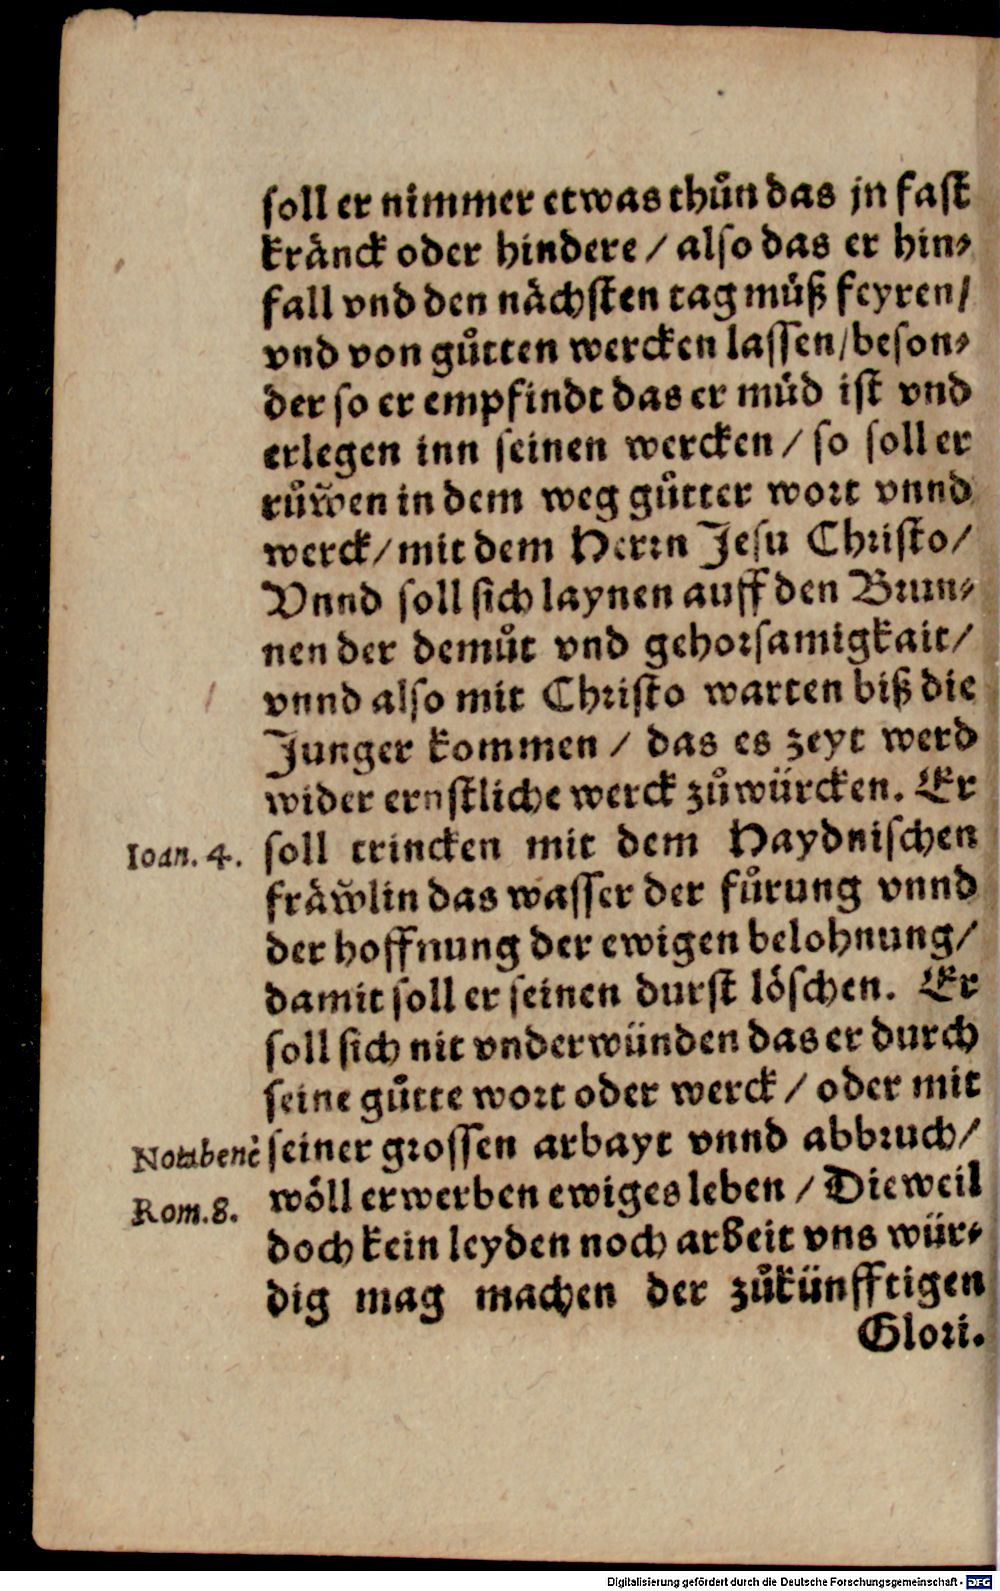 soll er nimmer etwas thůn das jn fast
kränck oder hindere / also das er hin-
fall vnd den nächsten tag můß feyren /
vnd von gůtten wercken lassen / beson-
der so er empfindt das er müd ist vnd
erlegen inn seinen wercken / so soll er
růw̆en in dem weg gůtter wort vnnd
werck / mit dem Herrn Jesu Christo /
Vnnd soll sich laynen auff den Brun-
nen der demůt vnd gehorsamigkait /
vnnd also mit Christo warten biß die
Junger kommen / das es zeyt werd
wider ernstliche werck zůwürcken. Er
Ioan. 4. soll trincken mit dem Haydnischen
fräw̆lin das wasser der fůrung vnnd
der hoffnung der ewigen belohnung /
damit soll er seinen durst löschen. Er
soll sich nit vnderwünden das er durch
seine gůtte wort oder werck / oder mit
Notabenè seiner grossen arbayt vnnd abbruch /
Rom. 8. wöll erwerben ewiges leben / Dieweil
doch kein leyden noch arbeit vns wür-
dig mag machen der zůkünfftigen
Glori.
Digitalisierung gefördert durch die Deutsche Forschungsgemeinschaft - DFG